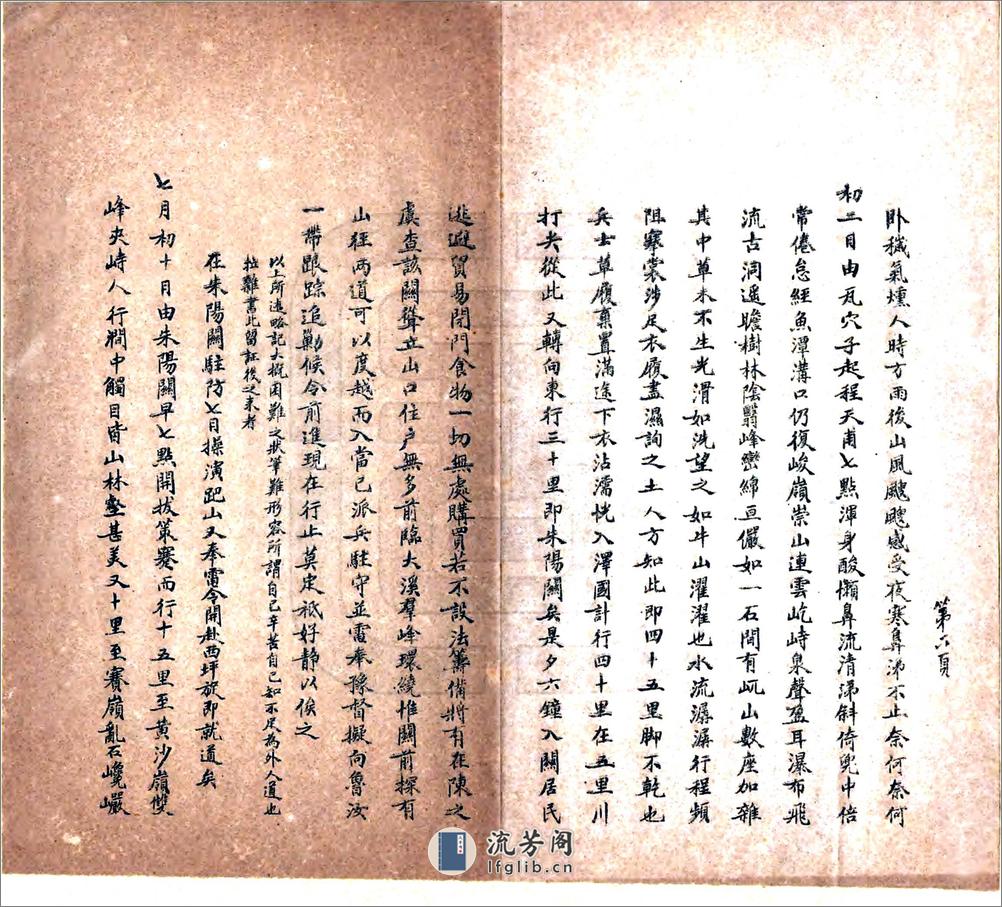 第六頁
卧穢氣燻人時方雨後山風颼颼感受夜寒鼻涕不止奈何奈何
初二日由瓦穴子起程天甫七點渾身酸懶鼻流清涕斜倚兜中倍
常倦怠經魚潭溝口仍復峻嶺崇山連雲屹峙泉聲盈耳瀑布飛
流古洞遥瞻樹林陰翳峰巒綿亘儼如一石間有屼山數座加雜
其中草木不生光滑如洗望之如牛山濯濯也水流潺潺行程頻
阻褰裳涉足衣履盡濕詢之土人方知此即四十五里脚不乾也
兵士草履棄置滿途下衣沾濡恍入澤國計行四十里在五里川
打尖從此又轉向東行三十里即朱陽關矣是夕六鐘入關居民
逃避貿易閉門食物一切無處購買若不設法籌備將有在陳之
虞查該關聳立山口住户無多前臨大溪羣峰環繞惟關前探有
山徑两道可以度越而入當已派兵駐守並電奉豫督擬向魯汝
一帶跟踪追勦候令前進現在行止莫定祇好静以俟之
以上所述略記大概困難之狀筆難形容所謂自己辛苦自己知不足為外人道也
拉雜書此留証後之来者
在朱陽關駐防七日操演跑山又奉電令開赴西坪旋即就道矣
七月初十日由朱陽關早七點開拔策蹇而行十五里至黄沙嶺雙
峰夾峙人行澗中觸目皆山林壑甚美又十里至賽嶺亂石巉巖
流芳阁
lfglib.cn